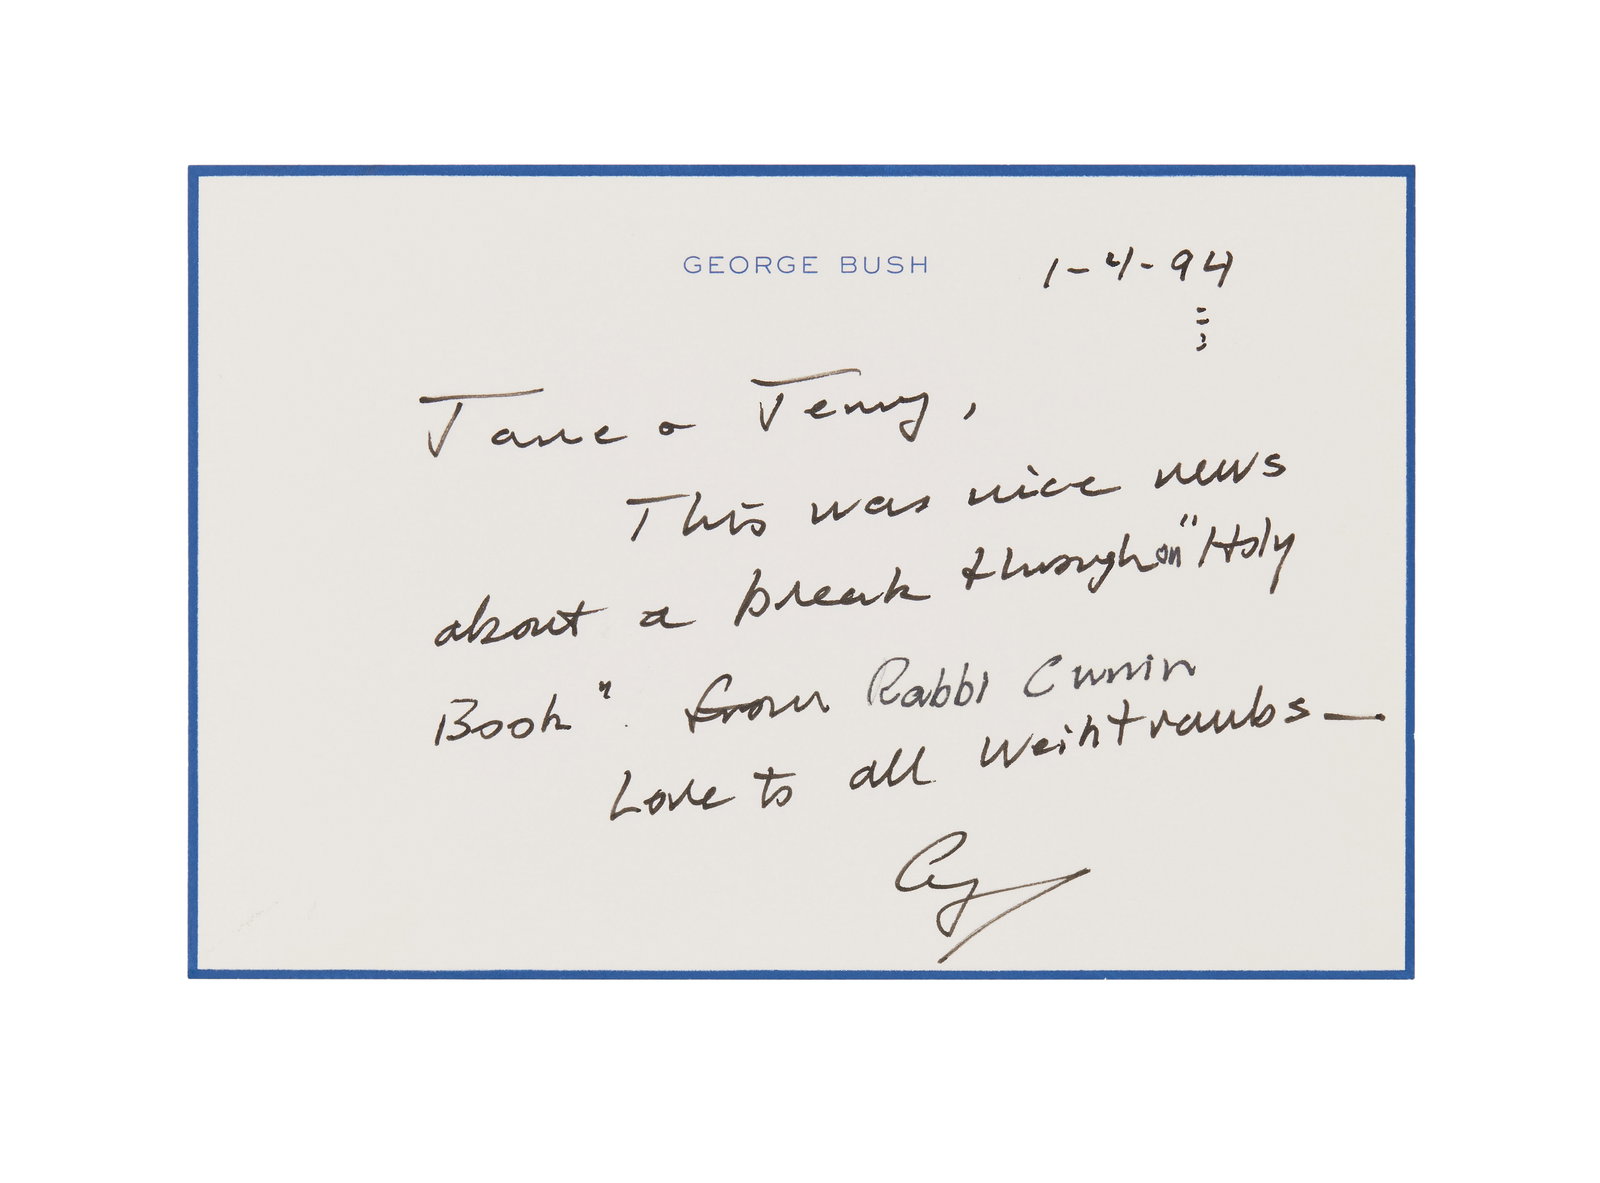 GEORGE BUSH 1-4-94
Jane & Jerry,
This was nice news
about a break through on "Holy
Book". from Rabbi Cunin
Love to all Weintraubs —